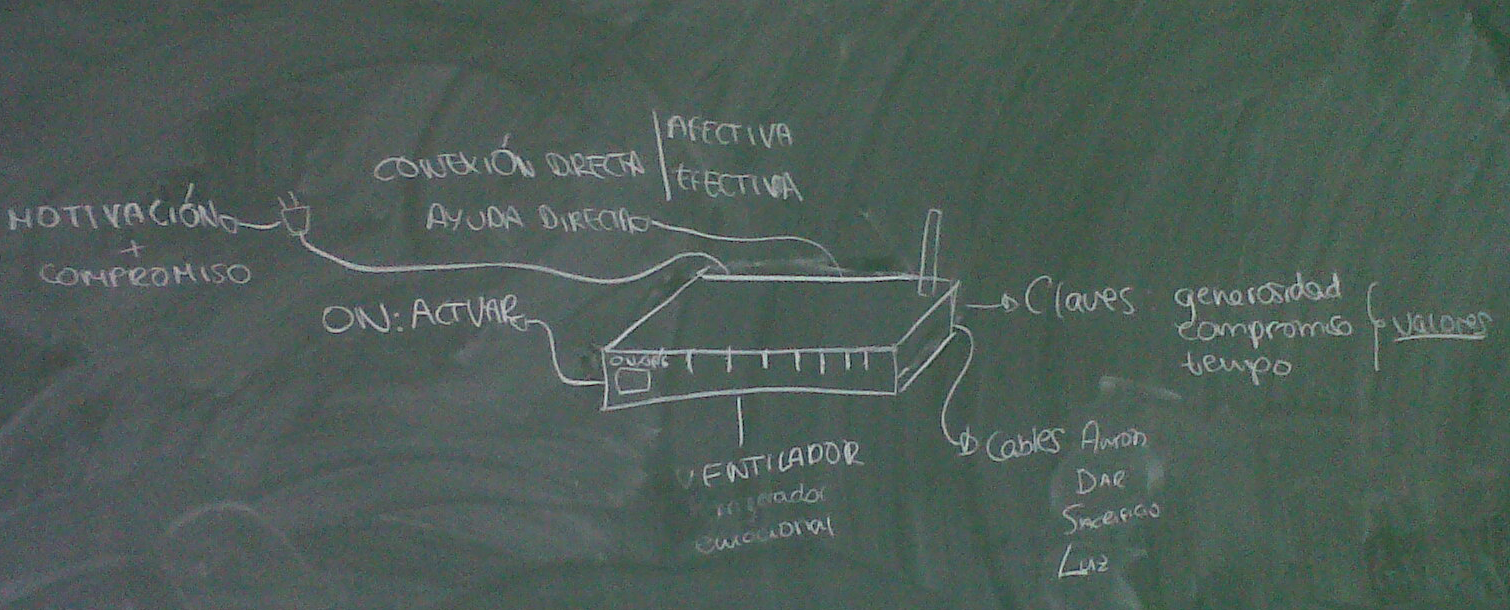 CONEXIÓN DIRECTA
AFECTIVA
EFECTIVA
MOTIVACIÓN
+
COMPROMISO
AYUDA DIRECTA
ON: ACTUAR
Claves generosidad
compromiso
tiempo
valores
VENTILADOR
emocional
Cables AMOR
DAR
SACRIFICIO
LUZ